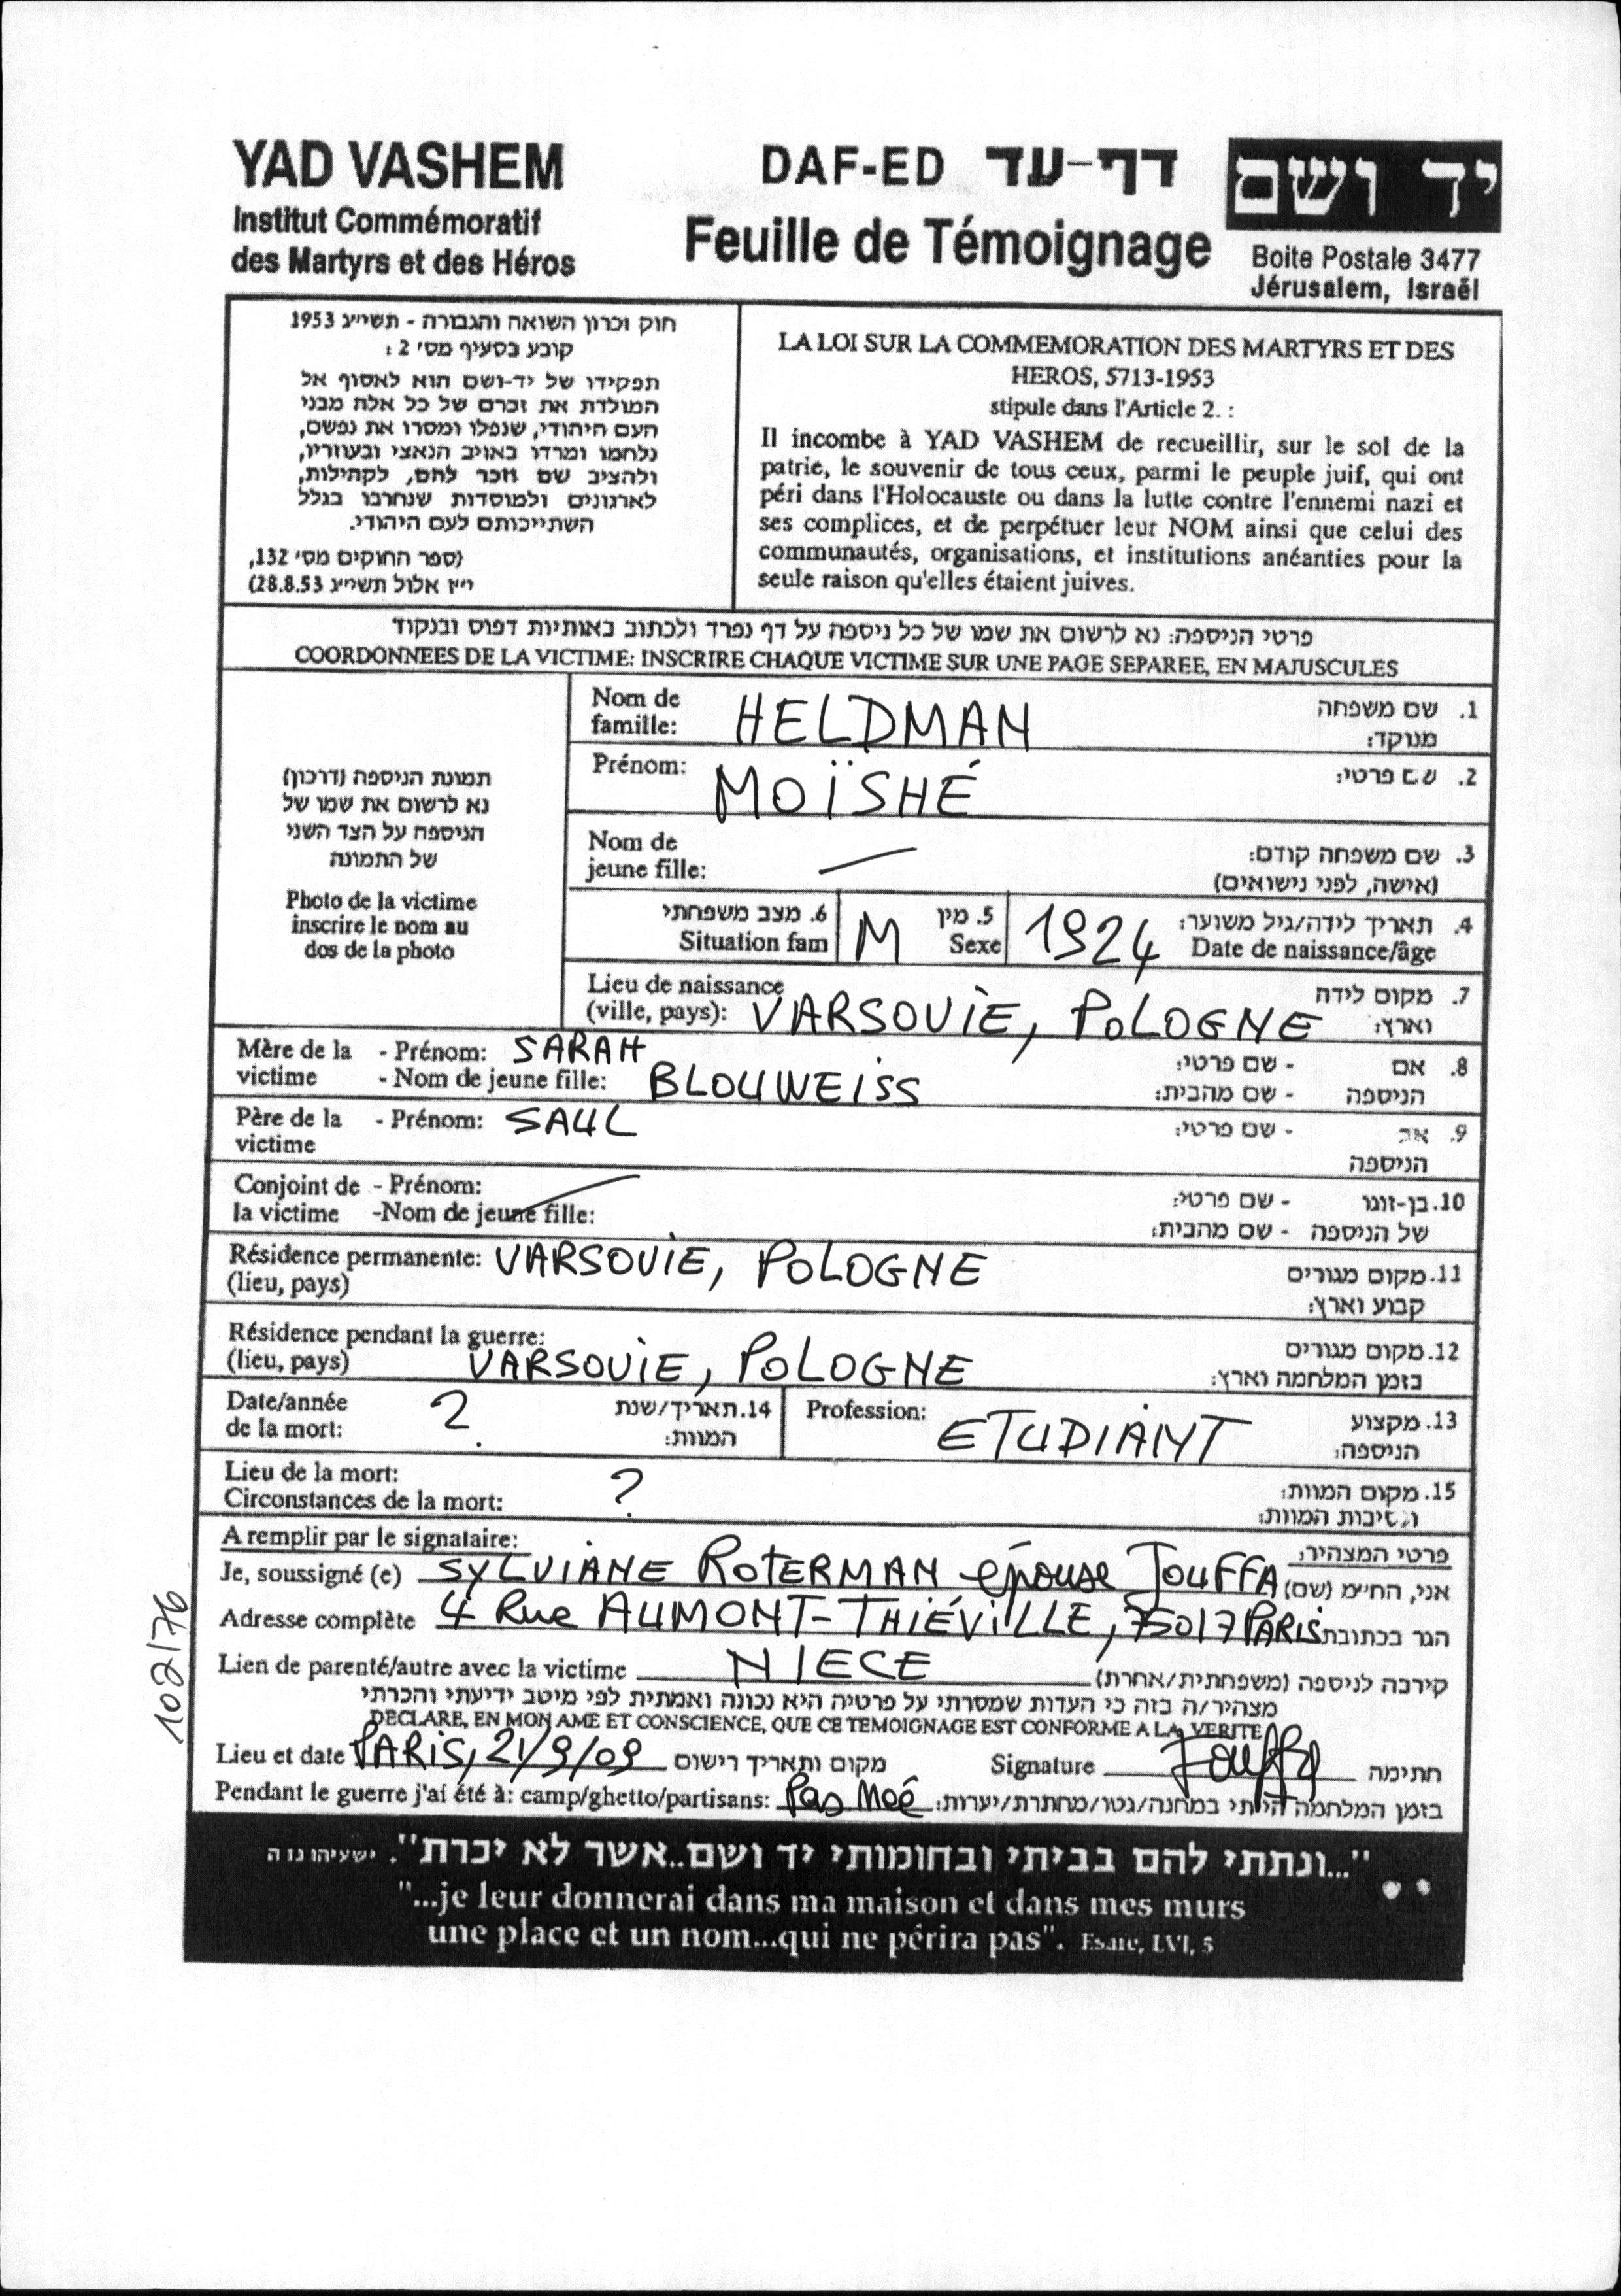 YAD VASHEM
Institut Commémoratif
des Martyrs et des Héros
DAF-ED דף-עד
Feuille de Témoignage
יד ושם
Boite Postale 3477
Jérusalem, Israël
חוק זכרון השואה והגבורה - תשי״ג 1953
קובע בסעיף מס׳ 2 :
תפקידו של יד-ושם הוא לאסוף אל
המולדת את זכרם של כל אלה מבני
העם היהודי, שנפלו ומסרו את נפשם,
נלחמו ומרדו באויב הנאצי ובעוזריו,
ולהציב שם וזכר להם, לקהילות,
לארגונים ולמוסדות שנחרבו בגלל
השתייכותם לעם היהודי.
(ספר החוקים מס׳ 132,
י״ז אלול תשי״ג 28.8.53)
LA LOI SUR LA COMMEMORATION DES MARTYRS ET DES
HEROS, 5713-1953
stipule dans l'Article 2. :
Il incombe à YAD VASHEM de recueillir, sur le sol de la
patrie, le souvenir de tous ceux, parmi le peuple juif, qui ont
péri dans l'Holocauste ou dans la lutte contre l'ennemi nazi et
ses complices, et de perpétuer leur NOM ainsi que celui des
communautés, organisations, et institutions anéanties pour la
seule raison qu'elles étaient juives.
פרטי הניספה: נא לרשום את שמו של כל ניספה על דף נפרד ולכתוב באותיות דפוס ובנקוד
COORDONNEES DE LA VICTIME: INSCRIRE CHAQUE VICTIME SUR UNE PAGE SEPAREE, EN MAJUSCULES
תמונת הניספה (דרכון)
נא לרשום את שמו של
הניספה על הצד השני
של התמונה
Photo de la victime
inscrire le nom au
dos de la photo
Nom de famille: HELDMAN 1. שם משפחה מנוקד:
Prénom: MOÏSHÉ 2. שם פרטי:
Nom de jeune fille: — 3. שם משפחה קודם:
(אישה, לפני נישואים)
6. מצב משפחתי M 5. מין 1924 4. תאריך לידה/גיל משוער:
Situation fam Sexe Date de naissance/âge
Lieu de naissance 7. מקום לידה
(ville, pays): VARSOVIE, POLOGNE וארץ:
Mère de la - Prénom: SARAH 8. אם - שם פרטי:
victime - Nom de jeune fille: BLOUWEISS הניספה - שם מהבית:
Père de la - Prénom: SAUL 9. אב - שם פרטי:
victime הניספה
Conjoint de - Prénom: 10. בן-זוגו - שם פרטי:
la victime -Nom de jeune fille: של הניספה - שם מהבית:
Résidence permanente: VARSOVIE, POLOGNE 11. מקום מגורים
(lieu, pays) קבוע וארץ:
Résidence pendant la guerre: 12. מקום מגורים
(lieu, pays) VARSOVIE, POLOGNE בזמן המלחמה וארץ:
Date/année ? 14. תאריך/שנת Profession: ETUDIANT 13. מקצוע
de la mort: המוות: הניספה:
Lieu de la mort: ? 15. מקום המוות:
Circonstances de la mort: ונסיבות המוות:
A remplir par le signataire: פרטי המצהיר:
Je, soussigné (e) SYLVIANE ROTERMAN épouse JOUFFA אני, הח״מ (שם)
Adresse complète 4 Rue AUMONT-THIÉVILLE, 75017 PARIS הגר בכתובת
Lien de parenté/autre avec la victime NIECE קירבה לניספה (משפחתית/אחרת)
מצהיר/ה בזה כי העדות שמסרתי על פרטיה היא נכונה ואמתית לפי מיטב ידיעתי והכרתי
DECLARE, EN MON AME ET CONSCIENCE, QUE CE TEMOIGNAGE EST CONFORME A LA VERITE
Lieu et date PARIS, 21/9/09 מקום ותאריך רישום Signature Jouffa חתימה
Pendant la guerre j'ai été à: camp/ghetto/partisans: Pas Née בזמן המלחמה הייתי במחנה/גטו/מחתרת/יערות:
"...ונתתי להם בביתי ובחומותי יד ושם..אשר לא יכרת". ישעיהו נו ה
"...je leur donnerai dans ma maison et dans mes murs
une place et un nom...qui ne périra pas". Esaïe, LVI, 5
102176